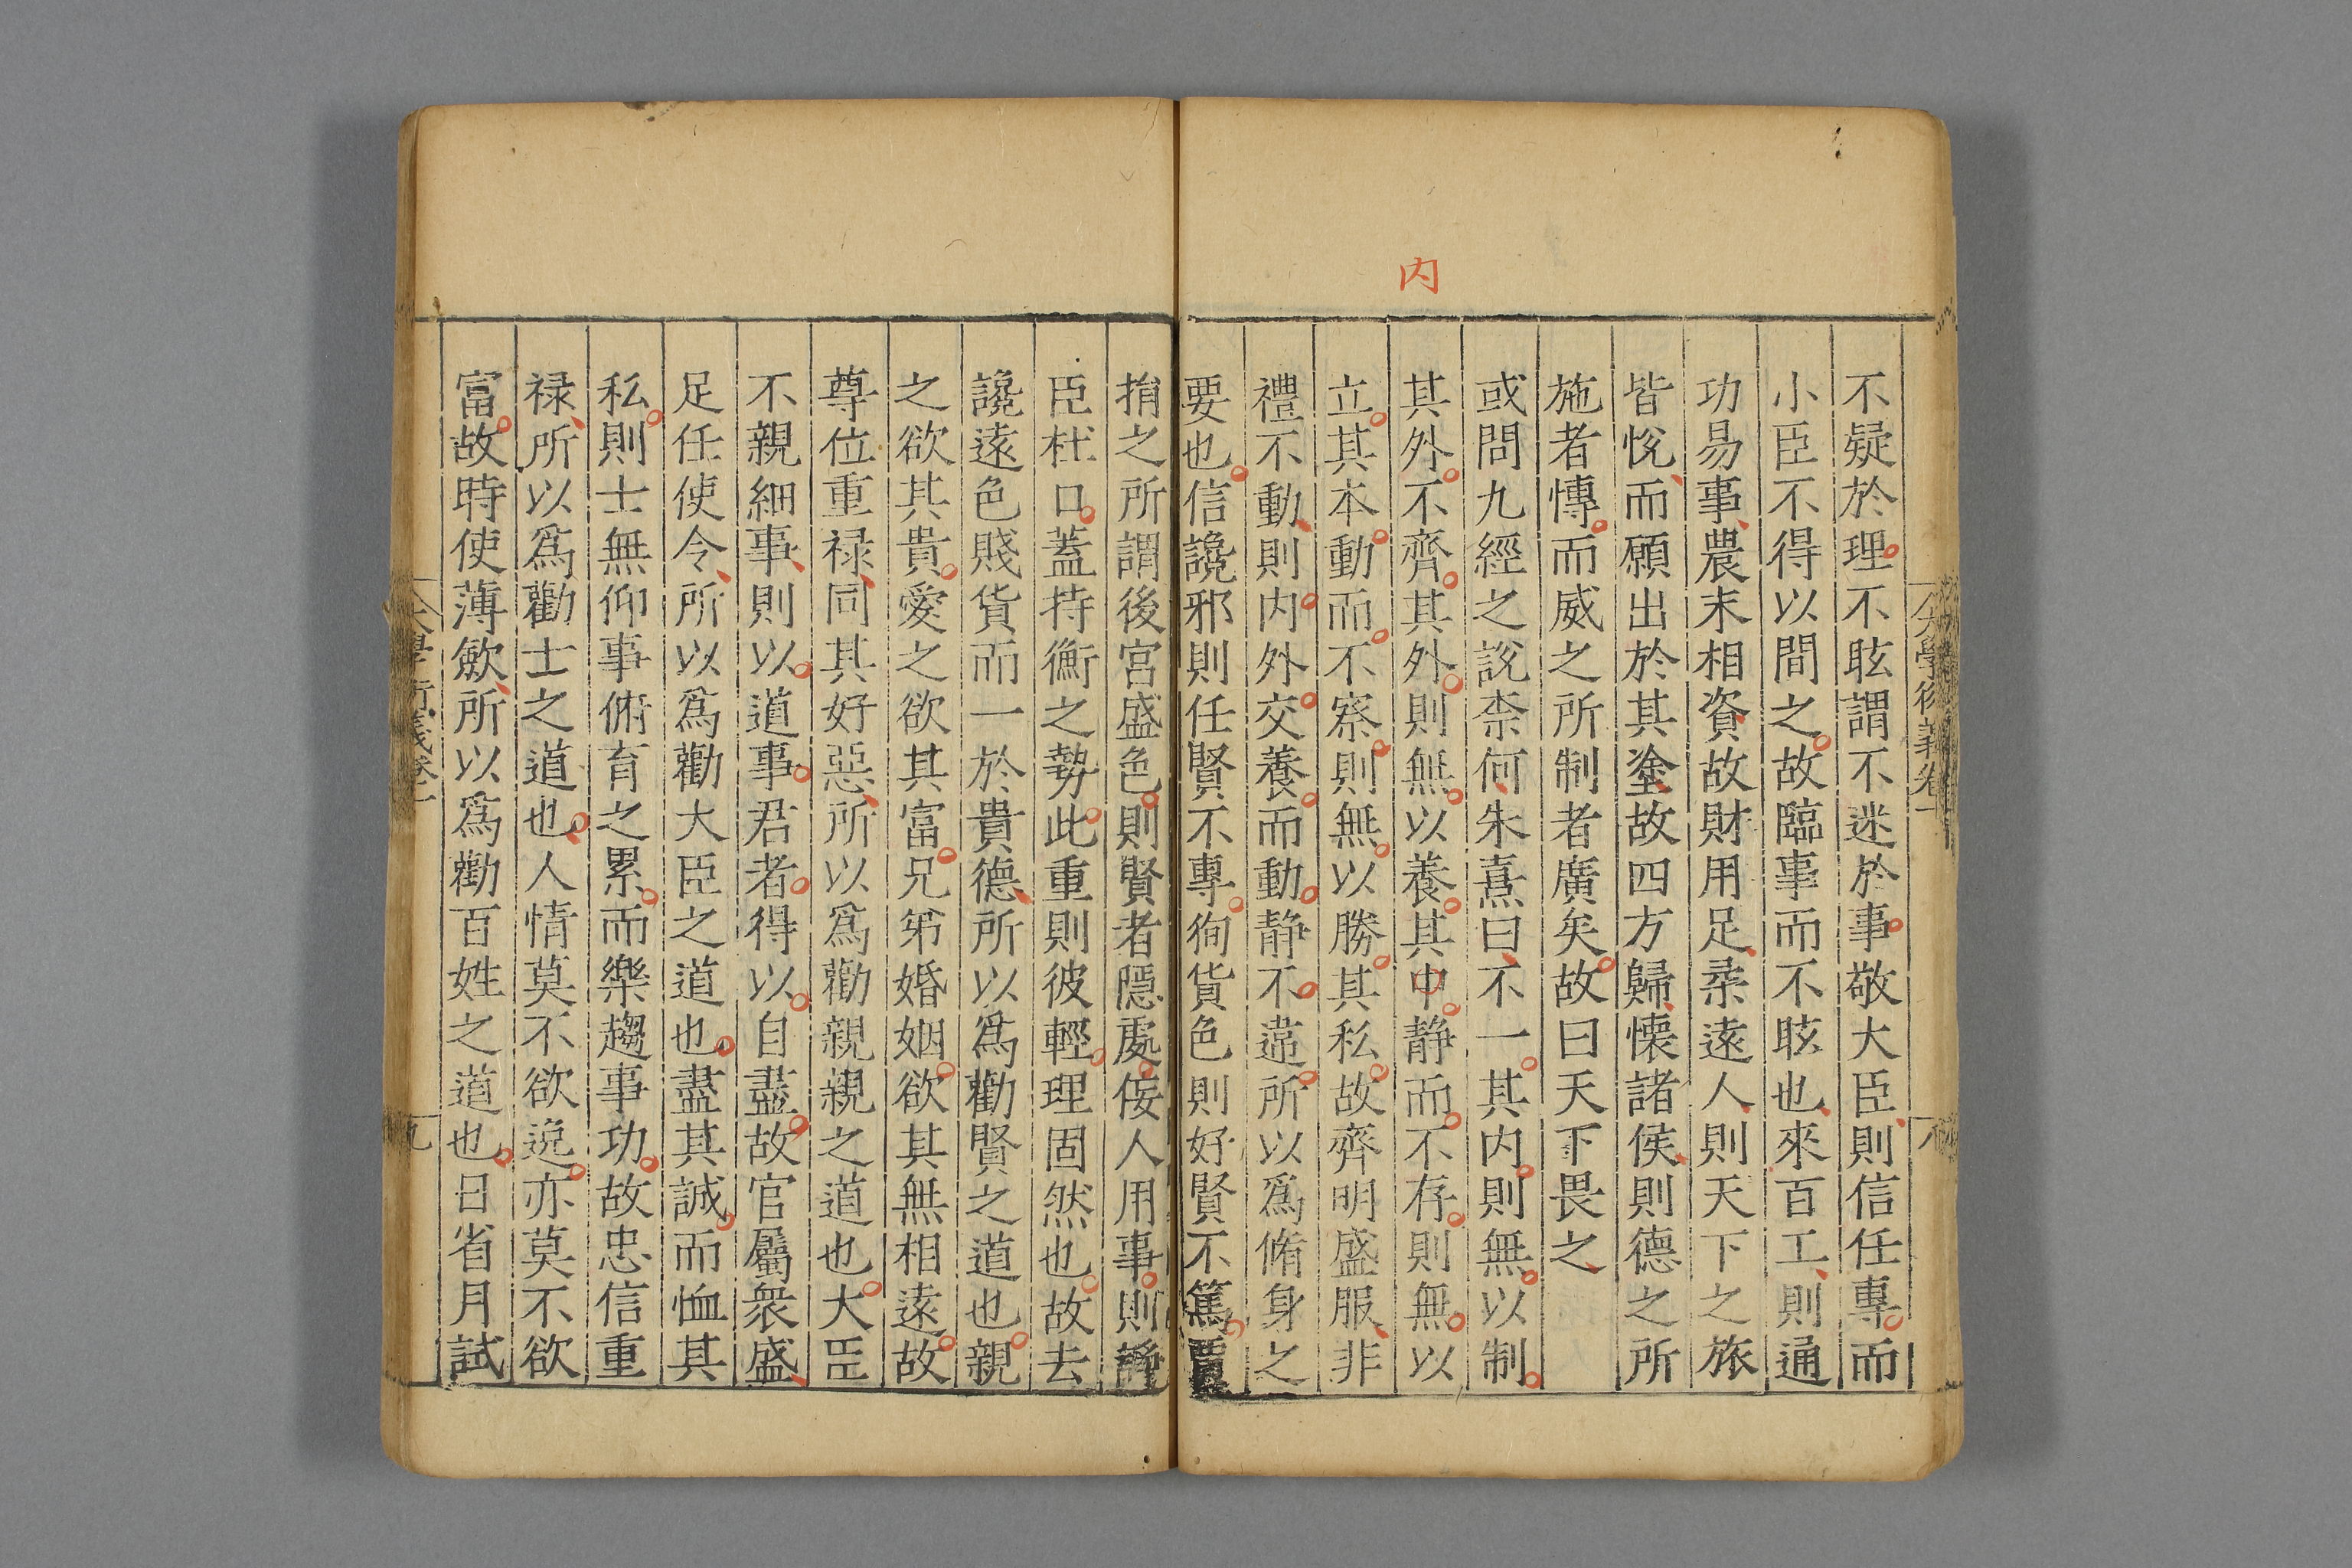 内
不疑於理不眩謂不迷於事敬大臣則信任專而
小臣不得以間之故臨事而不眩也來百工則通
功易事農末相資故財用足柔遠人則天下之旅
皆悅而願出於其塗故四方歸懷諸侯則德之所
施者愽而威之所制者廣矣故曰天下畏之
或問九經之說柰何朱熹曰不一其内則無以制
其外不齊其外則無以養其中静而不存則無以
立其本動而不察則無以勝其私故齊明盛服非
禮不動則内外交養而動静不違所以爲脩身之
要也信讒邪則任賢不專徇貨色則好賢不篤賈
捐之所謂後宮盛色則賢者隱處佞人用事則諍
臣杜口蓋持衡之勢此重則彼輕理固然也故去
讒遠色賤貨而一於貴德所以爲勸賢之道也親
之欲其貴愛之欲其富兄弟婚姻欲其無相遠故
尊位重禄同其好惡所以爲勸親親之道也大臣
不親細事則以道事君者得以自盡故官屬衆盛
足任使令所以爲勸大臣之道也盡其誠而恤其
私則士無仰事俯育之累而樂趨事功故忠信重
禄所以爲勸士之道也人情莫不欲逸亦莫不欲
富故時使薄歛所以爲勸百姓之道也日省月試
大學衍義卷一
八
大學衍義卷一
九